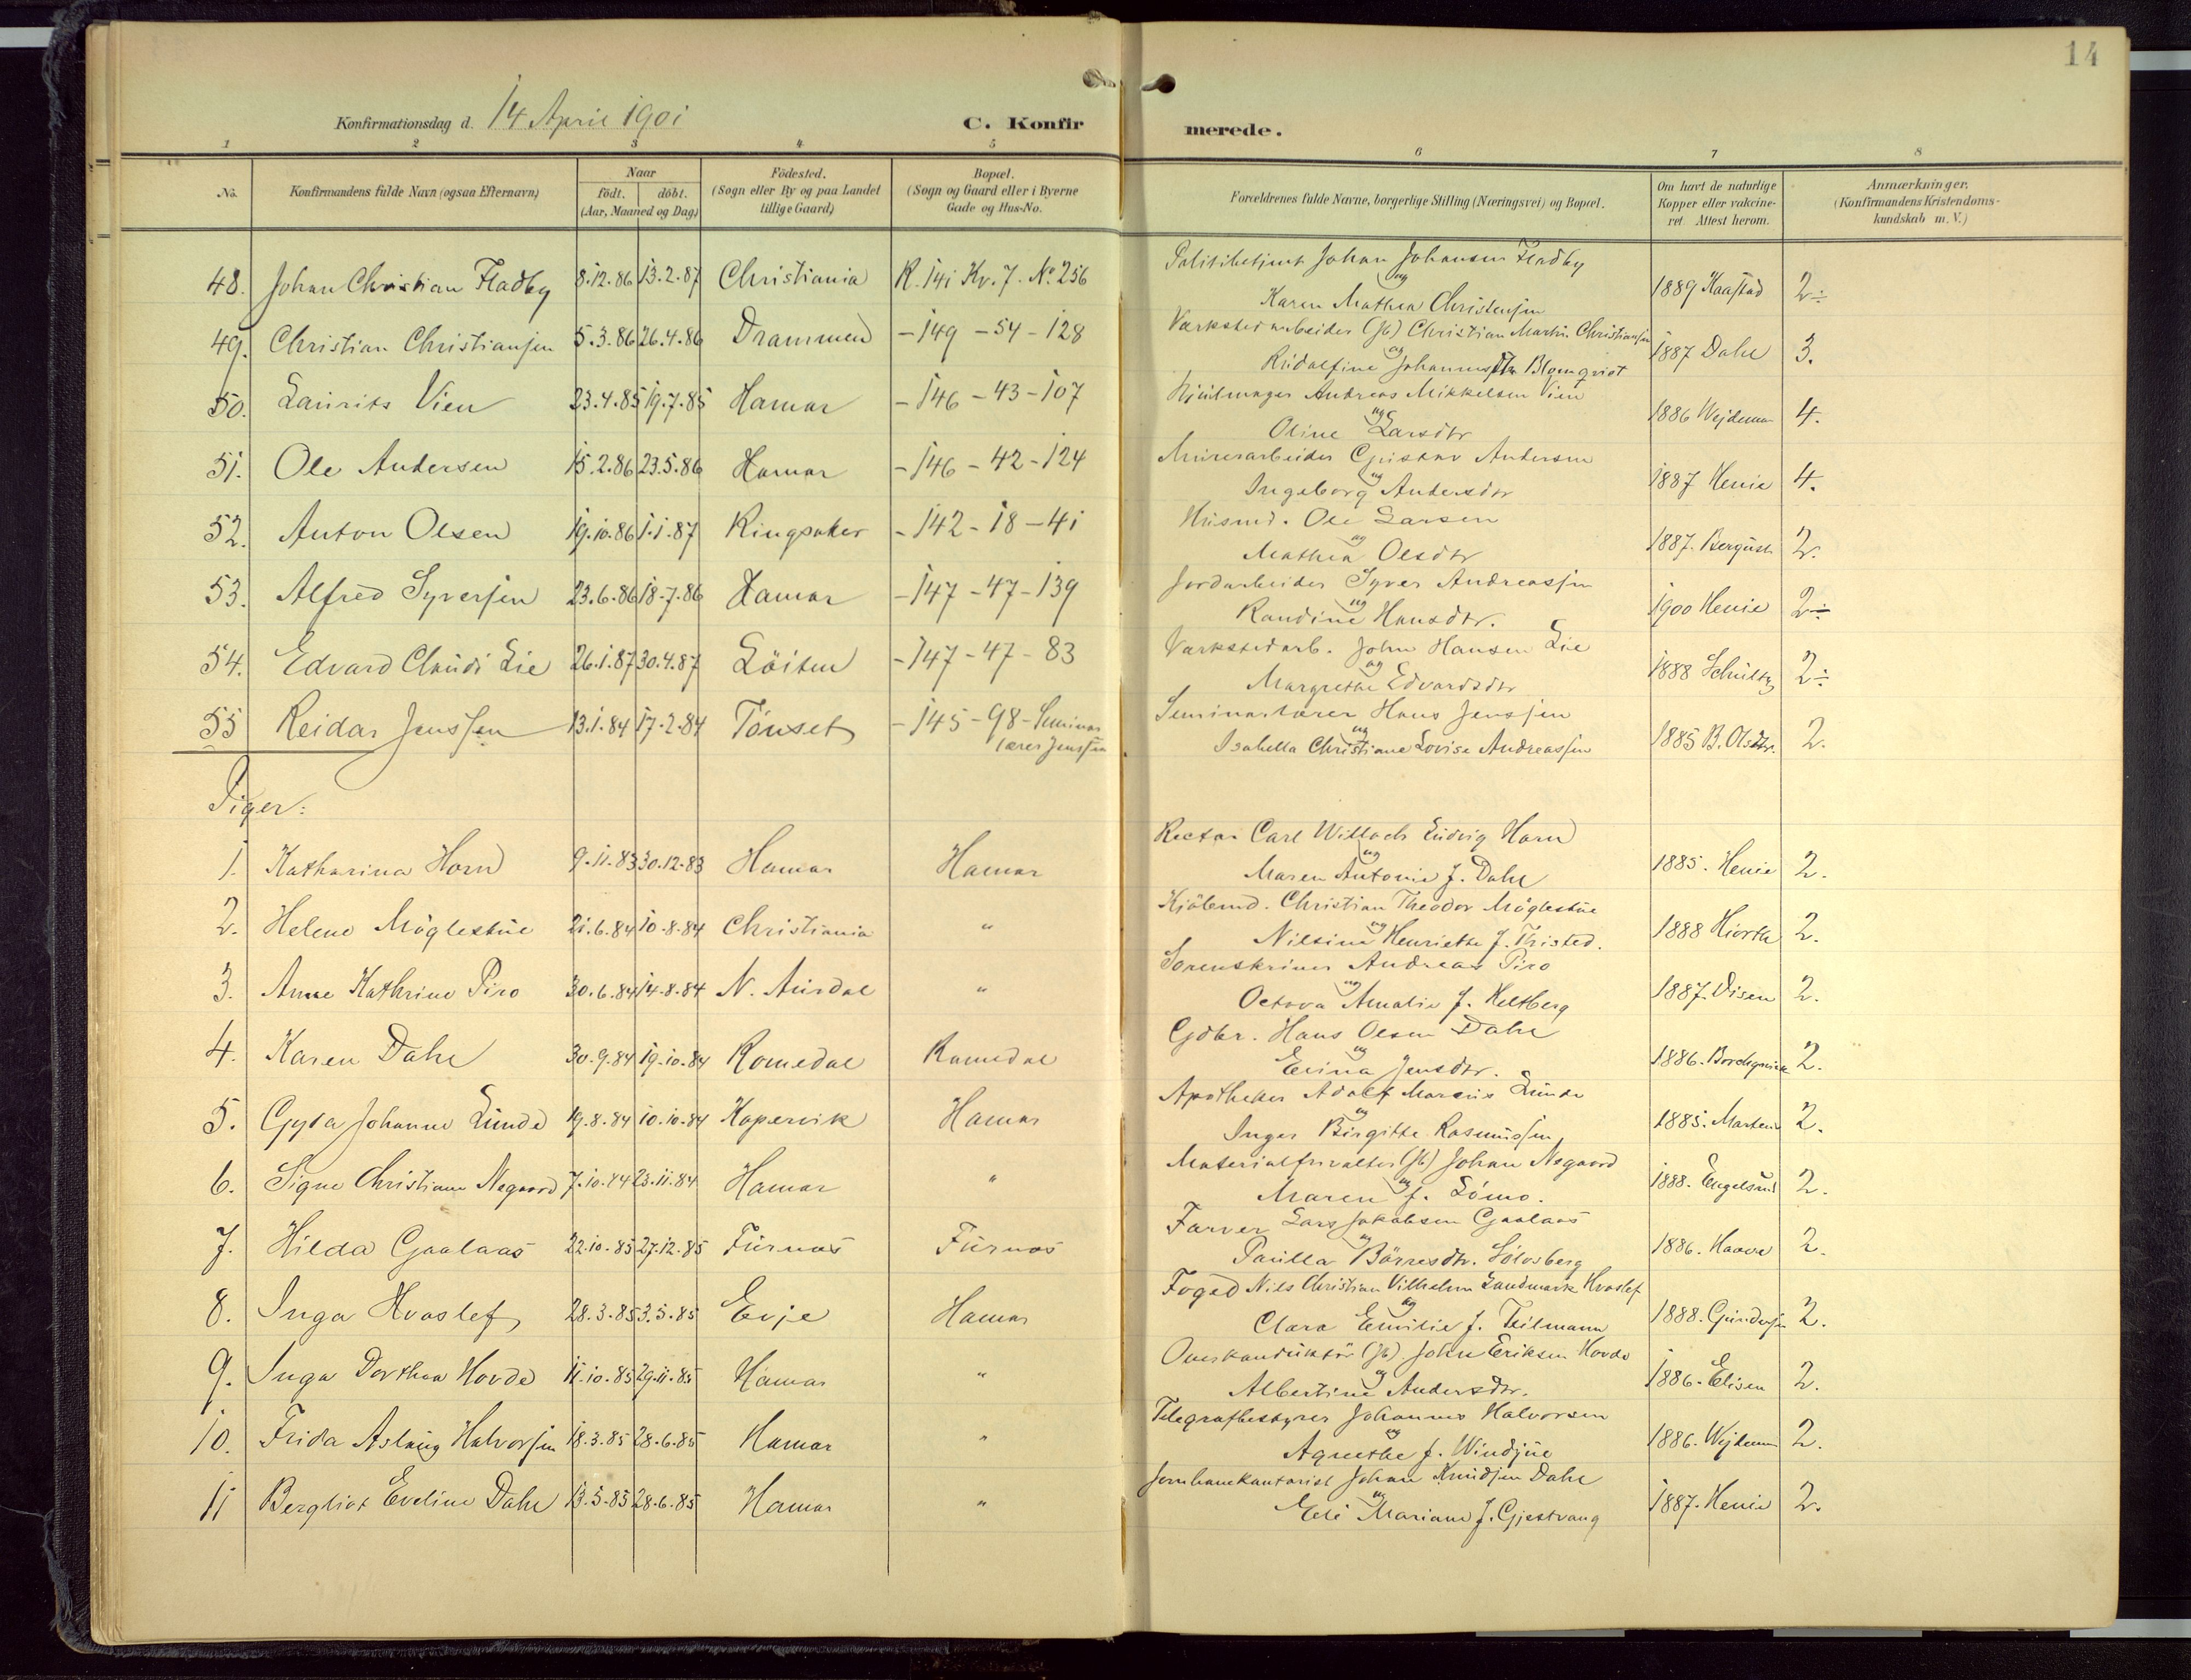 14
Konfirmationsdag d. 14 April 1901
C. Konfirmerede.
1 2 3 4 5 6 7 8
No.
Konfirmandens fulde Navn (ogsaa Efternavn)
Naar
födt. döbt.
(Aar, Maaned og Dag)
Födested.
(Sogn eller By og paa Landet
tillige Gaard)
Bopæl.
(Sogn og Gaard eller i Byerne
Gade og Hus-No.
Forældrenes fulde Navne, borgerlige Stilling (Næringsvei) og Bopæl.
Om havt de naturlige
Kopper eller vakcine-
ret Attest herom.
Anmærkninger.
(Konfirmandens Kristendoms-
kundskab m. V.)
48. Johan Christian Fladby 8.12.86 13.2.87 Christiania R. 141 Kv. 7. No. 256 Politibetjent Johan Johansen Fladby
og
Karen Mathea Christensen 1889 Kaastad 2÷
49. Christian Christiansen 5.3.86 26.4.86 Drammen - 149 - 54 - 128 Værkstedarbeider (Jb) Christian Martin Christiansen
og
Rudolfine Johannesdtr Blomqvist 1887 Dahl 3.
50. Laurits Vien 23.4.85 19.7.85 Hamar - 146 - 43 - 107 Hjulmager Andreas Mikkelsen Vien
og
Oline Larsdtr 1886 Wejdeman 4.
51. Ole Andersen 15.2.86 23.5.86 Hamar - 146 - 42 - 124 Murerarbeider Gustav Andersen
og
Ingeborg Andersdtr 1887 Henie 4.
52. Anton Olsen 19.10.86 1.1.87 Ringsaker - 142 - 18 - 41 Husmd. Ole Larsen
og
Mathea Olsdtr 1887. 2.
53. Alfred Syversen 23.6.86 18.7.86 Hamar - 147 - 47 - 139 Jordarbeider Syver Andreassen
og
Randine Hansdtr. 1900 Henie 2÷
54. Edvard Claudi Lie 26.1.87 30.4.87 Löiten - 147 - 47 - 83 Værkstedarb. John Hansen Lie
og
Margrethe Edvardsdtr 1888 Schultz 2÷
55 Reidar Jenssen 13.1.84 17.2.84 Tönset - 145 - 98 - Seminar
lærer Jenssen
Seminarlærer Hans Jenssen
og
Isabella Christiane Lovise Andreassen 1885 B. Olsdtr. 2.
Piger:
1. Katharina Horn 9.11.83 30.12.83 Hamar Hamar Rector Carl Willoch Ludvig Horn
og
Maren Antonie f. Dahl 1885. Henie 2.
2. Helene Möglestue 21.6.84 10.8.84 Christiania " Kjöbmd. Christian Theodor Möglestue
og
Nilsine Henriette f. Thisted. 1888 Hiorth 2.
3. Anne Kathrine Piro 30.6.84 14.8.84 N. Aurdal " Sorenskriver Andreas Piro
og
Octova Amalie f. Heltberg 1887. Disen 2.
4. Karen Dahl 30.9.84 19.10.84 Romedal Romedal Gdbr. Hans Olsen Dahl
og
Elina Jensdtr. 1886. Borchgrevink 2.
5. Gyda Johanne Lunde 19.8.84 10.10.84 Kopervik Hamar Apotheker Adolf Marcus Lunde
og
Inger Birgitte Rasmussen 1885. Martens 2.
6. Signe Christiane Negaard 7.10.84 23.11.84 Hamar " Materialforvalter (Jb) Johan Negaard
og
Maren f. Lömo. 1888. Engelsrud 2.
7. Hilda Gaalaas 22.10.85 27.12.85 Furnes Furnes Farver Lars Jakobsen Gaalaas
og
Paulla Börresdtr. Sölvsberg 1886. Haave 2.
8. Inga Hvoslef 28.3.85 3.5.85 Evje Hamar Foged Nils Christian Vilhelm Landmark Hvoslef
og
Clara Emilie f. Teilmann 1888. Gundersen 2.
9. Inga Dorthea Hovde 11.10.85 29.11.85 Hamar " Overkonduktör (Jb). John Eriksen Hovde
og
Albertine Andersdtr. 1886. Elisen 2.
10. Frida Aslaug Halvorsen 18.3.85 28.6.85 Hamar " Telegrafbestyrer Johannes Halvorsen
og
Agnethe f. Windjue 1886. Wejdeman 2.
11 Bergliot Eveline Dahl 13.5.85 28.6.85 Hamar " Jernbanekontorist Johan Knudsen Dahl
og
Eli Mariane f. Gjestvang 1887. Henie 2.